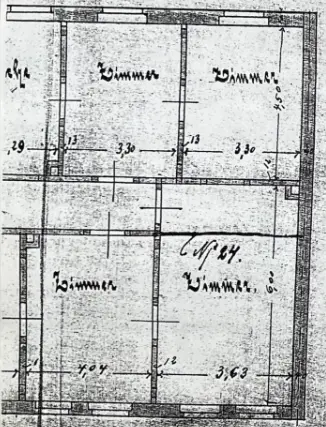 Zimmer Zimmer
,29 13 3,30 13 3,30
4,50
12
No 24.
Zimmer Zimmer.
4,04 12 3,63